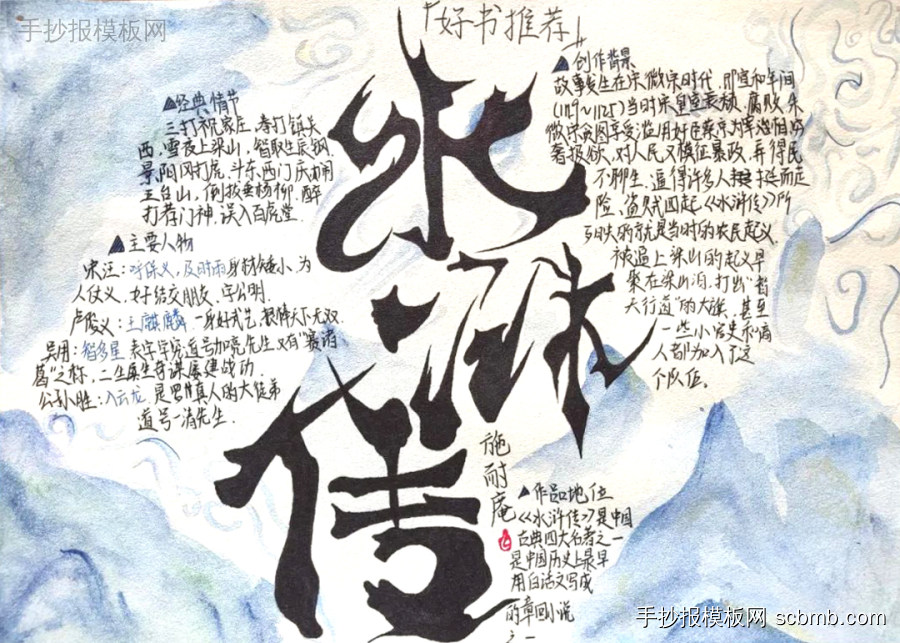 手抄报模板网
「好书推荐」
水浒传
施耐庵
▲经典情节
三打祝家庄,拳打镇关
西,雪夜上梁山,智取生辰钢,
景阳冈打虎,斗东西门庆,大闹
五台山,倒拔垂杨柳,醉
打蒋门神,误入白虎堂.
▲主要人物
宋江:呼保义,及时雨身材矮小,为
人仗义,好结交朋友,字公明.
卢俊义:玉麒麟.一身好武艺,棍棒天下无双.
吴用:智多星 表字学究,道号加亮先生,又有"赛诸
葛"之称,二生屡建战功.
公孙胜:入云龙,是罗真人的大徒弟
道号一清先生.
▲创作背景
故事发生在宋徽宗时代,即宣和年间
(1119~1125)当时宋皇室衰颓,腐败,宋
徽宗贪图享受滥用奸臣蔡京为军
著报欲,对人民又横征暴政,弄得民
不聊生,逼得许多人铤而走
险,盗贼四起.《水浒传》所
描述的就是当时的农民起义,
被逼上梁山的起义军
聚在梁山泊,打出"替
天行道"的大旗,甚至
一些小官吏
人都加入了这
个队伍.
▲作品地位
《水浒传》是中国
古典四大名著之一
是中国历史上最早
用白话文写成
的章回小说
之一
手抄报模板网 scbmb.com